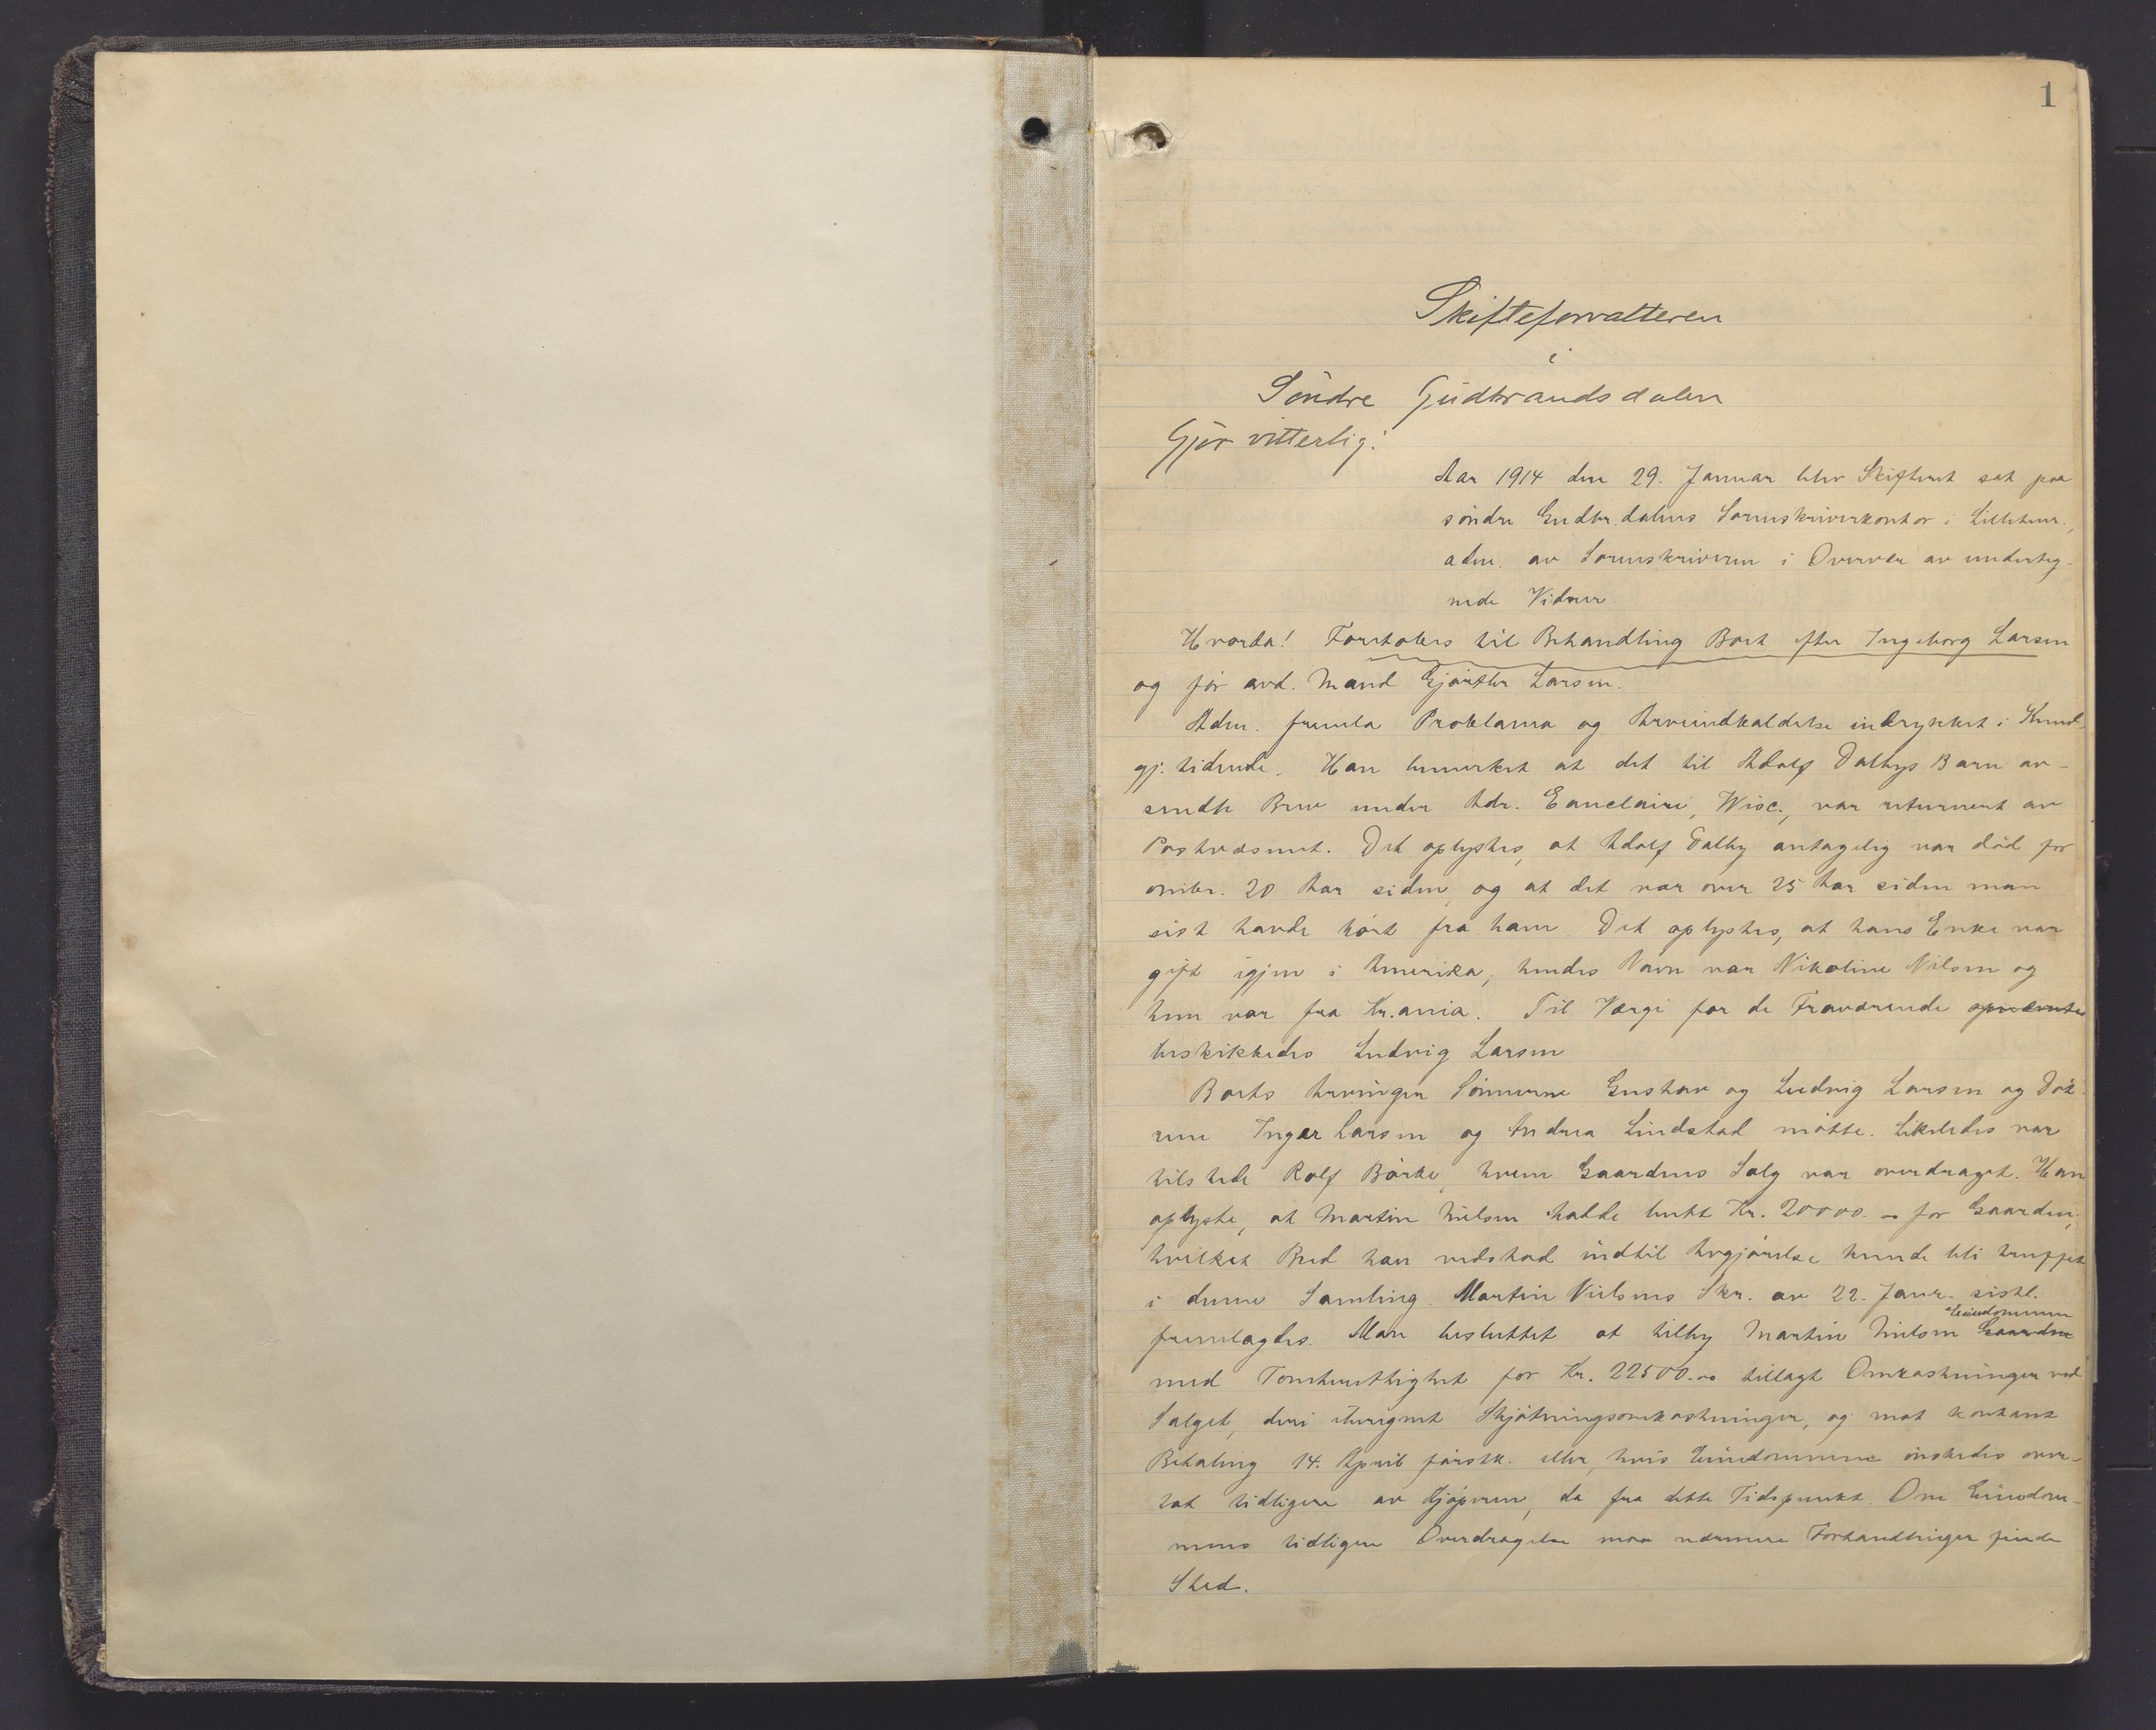 1
Skifteforvalteren
i
Söndre Gudbrandsdalen
Gjör vitterlig:
Aar 1914 den 29. Januar blev Skifteret sat paa
söndre Gudbr.dalens Sorenskriverkontor i Lilleham.,
adm. av Sorenskriveren i Overvær av underteg-
nede Vidner.
Hvorda! Foretokes til Behandling Boet efter Ingeborg Larsen
og för avd. Mand Larsen.
Adm. fremla Proklama og Arveindkaldelse indrykket i Kund-
gj. tidende. Han bemerket at det til Adolf Dalbys Barn av-
sendte Brev under Adr. Eauclaire, Wisc., var returneret av
Postvæsenet. Det oplystes, at Adolf Dalby antagelig var död for
omtr. 20 Aar siden, og at det var over 25 Aar siden man
sist havde hört fra ham. Det oplystes, at hans Enke var
gift igjen i Amerika, hendes Navn var Nikoline Nilsen og
hun var fra Kr.ania. Til Værge for de Fraværende opnævntes
beskikkedes Ludvig Larsen
Boets Arvinger Sönnerne Gustav og Ludvig Larsen og Döt-
rene Inger Larsen og Andrea Lindstad mötte. Likeledes var
tilstede Rolf Börke, hvem Gaardens Salg var overdraget. Han
oplyste, at Martin Nielsen hadde budt Kr. 20000.- for Gaarden,
hvilket Bud han vedstod indtil Avgjörelse kunde bli truffet
i denne Samling. Martin Nielsens Skr. av 22. Janr. sistl.
fremlagdes. Man besluttet at tilby Martin Nielsen Gaarden Eiendommen
med Tomtenyttighet for Kr. 22500.00 tillagt Omkostninger ved
Salget, deri iberegnet Skjötningsomkostninger, og mot kontant
Betaling 14. April förstk. eller, hvis Eiendommene önskedes over-
tat tidligere av Kjöperen, da fra dette Tidspunkt. Om Eiendom-
mens tidligere Overdragelse maa nærmere Forhandlinger finde
Sted.